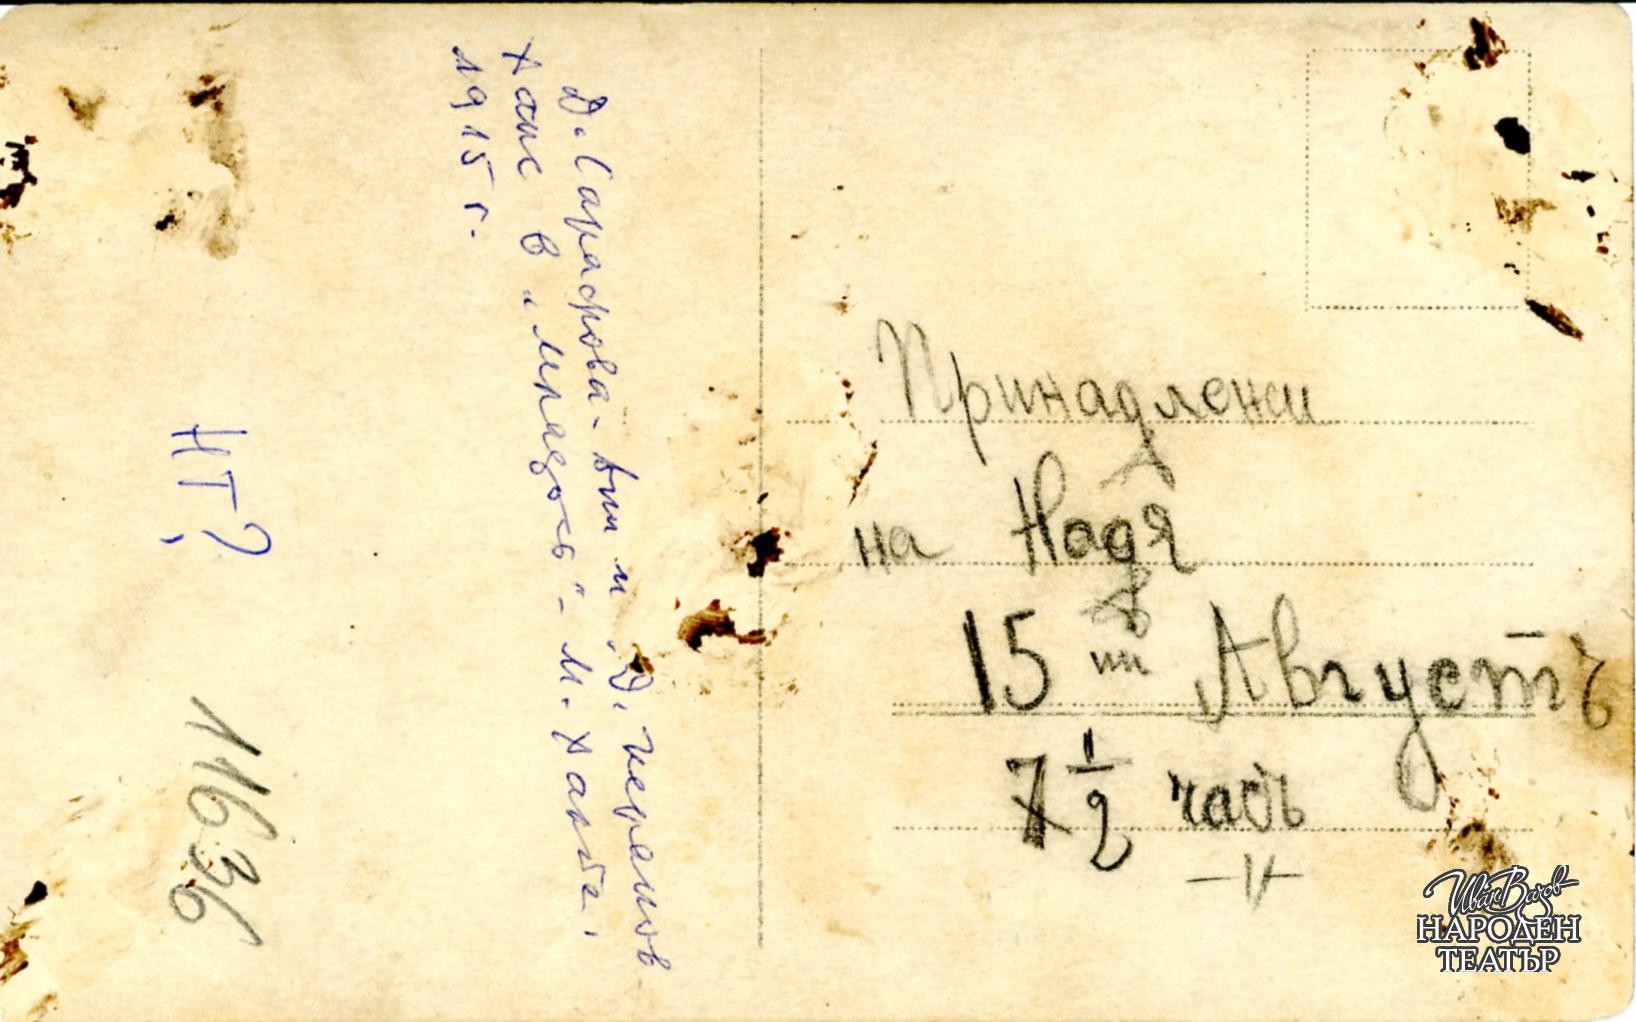 Д. Сарафова - Ели и Д. Керанов
Ханс в „Младость" - М. Халбе,
1915 г.
НТ?
11636
Принадлежи
на Надя
15 ти Августъ
7 1/2 часъ
Иван Вазов
НАРОДЕН
ТЕАТЪР